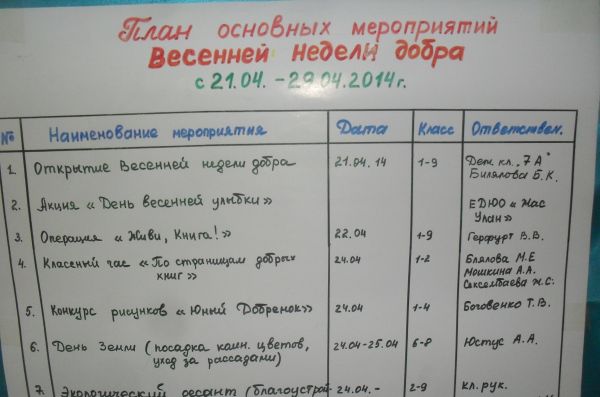 План основных мероприятий
Весенней недели добра
с 21.04. - 29.04.2014г.
№ Наименование мероприятия Дата Класс Ответствен.
1. Открытие Весенней недели добра 21.04.14 1-9 Деж. кл. „7А"
Билялова Б.К.
2. Акция «День весенней улыбки» ЕДЮО «Жас
Улан»
3. Операция «Живи, Книга!» 22.04 1-9 Герфурт В.В.
4. Классный час «По страницам добрых 24.04 1-2 Бялялова М.Е
книг» Мошкина А.А.
Сексембаева Ж.С.
5. Конкурс рисунков «Юный Добренок» 24.04 1-4 Боговенко Т.В.
6. День Земли (посадка комн. цветов, 24.04-25.04 6-8 Юстус А.А.
уход за рассадами)
7. Экологический десант (благоустрой- 24.04.- 2-9 кл. рук.